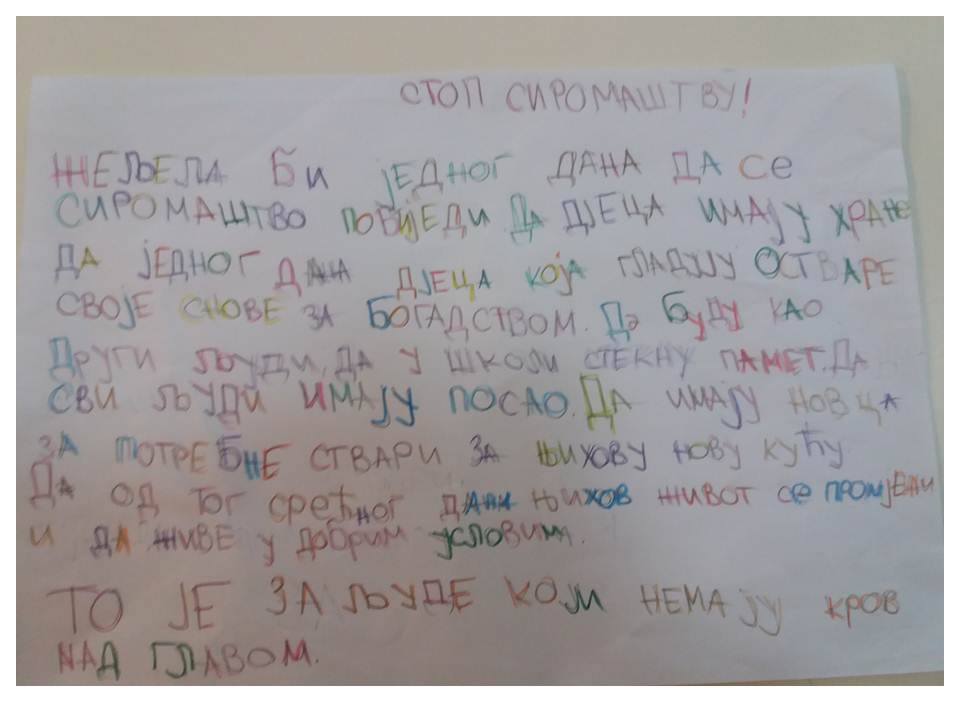 СТОП СИРОМАШТВУ!
ЖЕЉЕЛА БИ ЈЕДНОГ ДАНА ДА СЕ
СИРОМАШТВО ПОВИЈЕДИ. ДА ДЈЕЦА ИМАЈУ ХРАНЕ
ДА ЈЕДНОГ ДАНА ДЈЕЦА КОЈА ГЛАДУЈУ ОСТВАРЕ
СВОЈЕ СНОВЕ ЗА БОГАДСТВОМ. ДА БУДУ КАО
ДРУГИ ЉУДИ, ДА У ШКОЛИ СТЕКНУ ПАМЕТ. ДА
СВИ ЉУДИ ИМАЈУ ПОСАО. ДА ИМАЈУ НОВЦА
ЗА ПОТРЕБНЕ СТВАРИ ЗА ЊИХОВУ НОВУ КУЋУ
ДА ОД ТОГ СРЕЋНОГ ДАНА ЊИХОВ ЖИВОТ СЕ ПРОМЈЕНИ
И ДА ЖИВЕ У ДОБРИМ УСЛОВИМА.
ТО ЈЕ ЗА ЉУДЕ КОЈИ НЕМАЈУ КРОВ
НАД ГЛАВОМ.